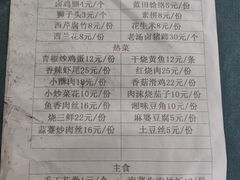 卤鸡翅1元/个 蓝田饸饹5元/份
狮子头3元/个 素拼8元/份
西芹腐竹8元/份 花生米8元/份
西兰花8元/份 老汤卤猪蹄30元/个
热菜
青椒炒鸡蛋12元/份 干烧黄鱼12元/条
香辣虾尾25元/份 红烧肉25元/份
小酥肉10元/份 香菇滑鸡22元/份
小炒菜花10元/份 肉沫烧茄子10元/份
鱼香肉丝16元/份 湘味豆角10元/份
烧三鲜22元/份 麻婆豆腐5元/份
蒜薹炒肉丝16元/份 土豆丝5元/份
主食